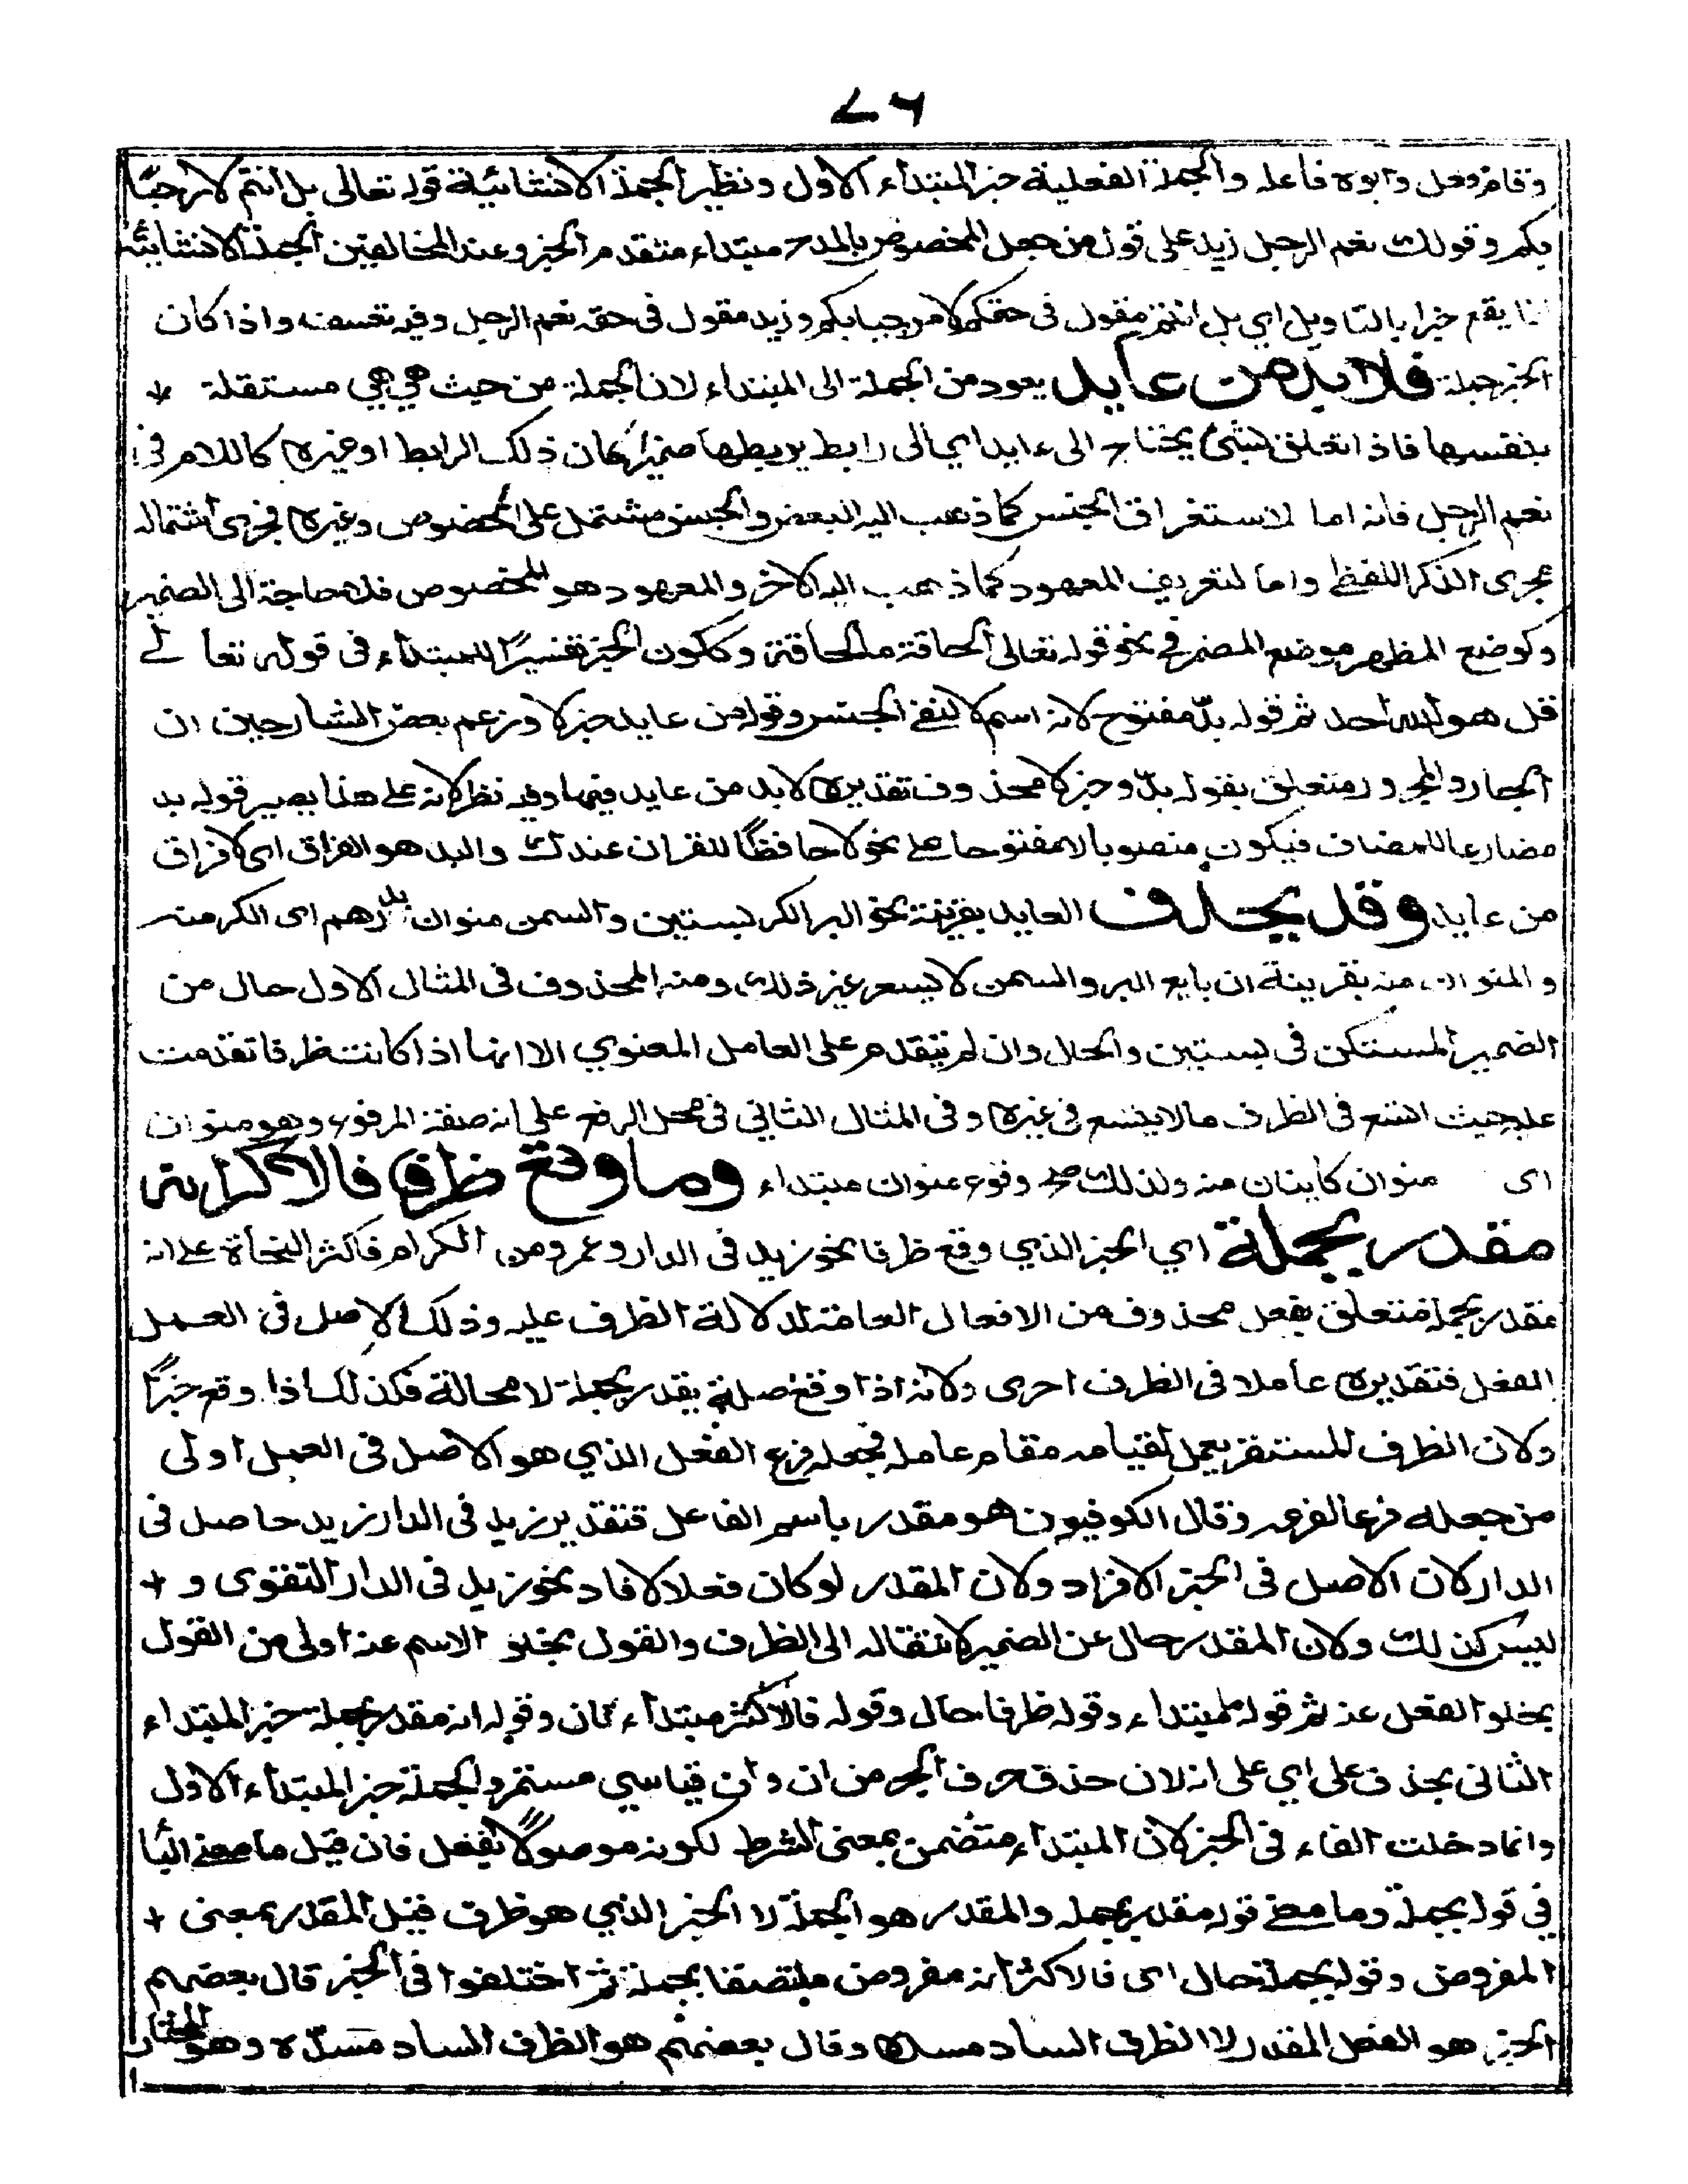 ٧٦
وقام فعل وابوه فاعله والجملة الفعلية خبر المبتداء الاول ونظير الجملة الانشائية قوله تعالى بل انتم لا مرحبًا
بكم وقولك نعم الرجل زيد على قول من جعل المخصوص بالمدح مبتداء متقدم الخبر وعند المخالفين الجملة الانشائية
انما يقع خبرا بالتاويل اي بل انتم مقول فى حقكم لا مرحبا بكم وزيد مقول فى حقه نعم الرجل وفيه تعسف واذا كان
الخبر جملة فلا بد من عايد يعود من الجملة الى المبتداء لان الجملة من حيث هي هي مستقلة
بنفسها فاذا تعلق بشئ يحتاج الى عايد اي الى رابط يربطها ضميرا كان ذلك الرابط او غيره كاللام فى
نعم الرجل فانه اما لاستغراق الجنس كما ذهب اليه البعض والجنس مشتمل على المخصوص وغيره فجرى اشتماله
مجرى الذكر اللفظي واما لتعريف المعهود كما ذهب اليه الاخر والمعهود هو المخصوص فلا حاجة الى الضمير
وكوضع المظهر موضع المضمر في نحو قوله تعالى الحاقة ما الحاقة وككون الخبر تفسيرًا للمبتداء فى قوله تعالے
قل هو الله احد ثم قوله بدّ مفتوح لانه اسم لا لنفى الجنس وقوله من عايد خبر لا وزعم بعض الشارحين ان
الجار والمجرور متعلق بقوله بدّ وخبر لا محذوف تقديره لا بد من عايد فيها وفيه نظر لانه على هذا يصير قوله بد
مضارعا للمضاف فيكون منصوبا لا مفتوحا على نحو لا حافظًا للقران عندك والبد هو الفراق اى لا فراق
من عايد وقد يحذف العايد بقرينة نحو البر الكر بستين والسمن منوان بدرهم اى الكر منه
والمنوان منه بقرينة ان بايع البر والسمن لا يسعر غير ذلك ومنه المحذوف فى المثال الاول حال من
الضمير المستكن فى بستين والحال وان لم يتقدم على العامل المعنوي الا انها اذا كانت ظرفا تقدمت
عليه حيث اتسع فى الظرف ما لا يتسع فى غيره وفى المثال الثاني فى محل الرفع على انه صفة المرفوع وهو منوان
اى منوان كاينان منه ولذلك صح وقوع منوان مبتداء وما وقع ظرفا فالاكثر انه
مقدر بجملة اي الخبر الذي وقع ظرفا نحو زيد فى الدار وعمرو من الكرام فاكثر النحاة على انه
مقدر بجملة متعلق بفعل محذوف من الافعال العامة لدلالة الظرف عليه وذلك لان الاصل فى العمل
الفعل فتقديره عاملا فى الظرف احرى ولانه اذا وقع صلة يقدر بجملة لا محالة فكذلك اذا وقع خبرًا
ولان الظرف المستقر يعمل لقيامه مقام عامله فجعله فرع الفعل الذي هو الاصل فى العمل اولى
من جعله فرعا لفرعه وقال الكوفيون هو مقدر باسم الفاعل فتقدير زيد فى الدار زيد حاصل فى
الدار لان الاصل فى الخبر الافراد ولان المقدر لو كان فعلا لافاد نحو زيد فى الدار التقوى و
ليس كذلك ولان المقدر حال عن الضمير لانتقاله الى الظرف والقول بخلو الاسم عنه اولى من القول
بخلو الفعل عنه ثم قوله ما مبتداء وقوله ظرفا حال وقوله فالاكثر مبتداء ثان وقوله انه مقدر بجملة خبر المبتداء
الثانى بحذف على اي على انه لان حذف حرف الجر من ان وان قياسي مستمر والجملة خبر المبتداء الاول
وانما دخلت الفاء فى الخبر لان المبتداء متضمن بمعنى الشرط لكونه موصولًا بفعل فان قيل ما معنے البا
فى قوله بجملة وما معنے قوله مقدر بجملة والمقدر هو الجملة لا الخبر الذي هو ظرف قيل المقدر بمعنى
المفروض وقوله بجملة حال اى فالاكثر انه مفروض ملتصقا بجملة ثم اختلفوا فى الخبر قال بعضهم
الخبر هو الفعل المقدر لا الظرف الساد مسده وقال بعضهم هو الظرف الساد مسدّه وهو المختار